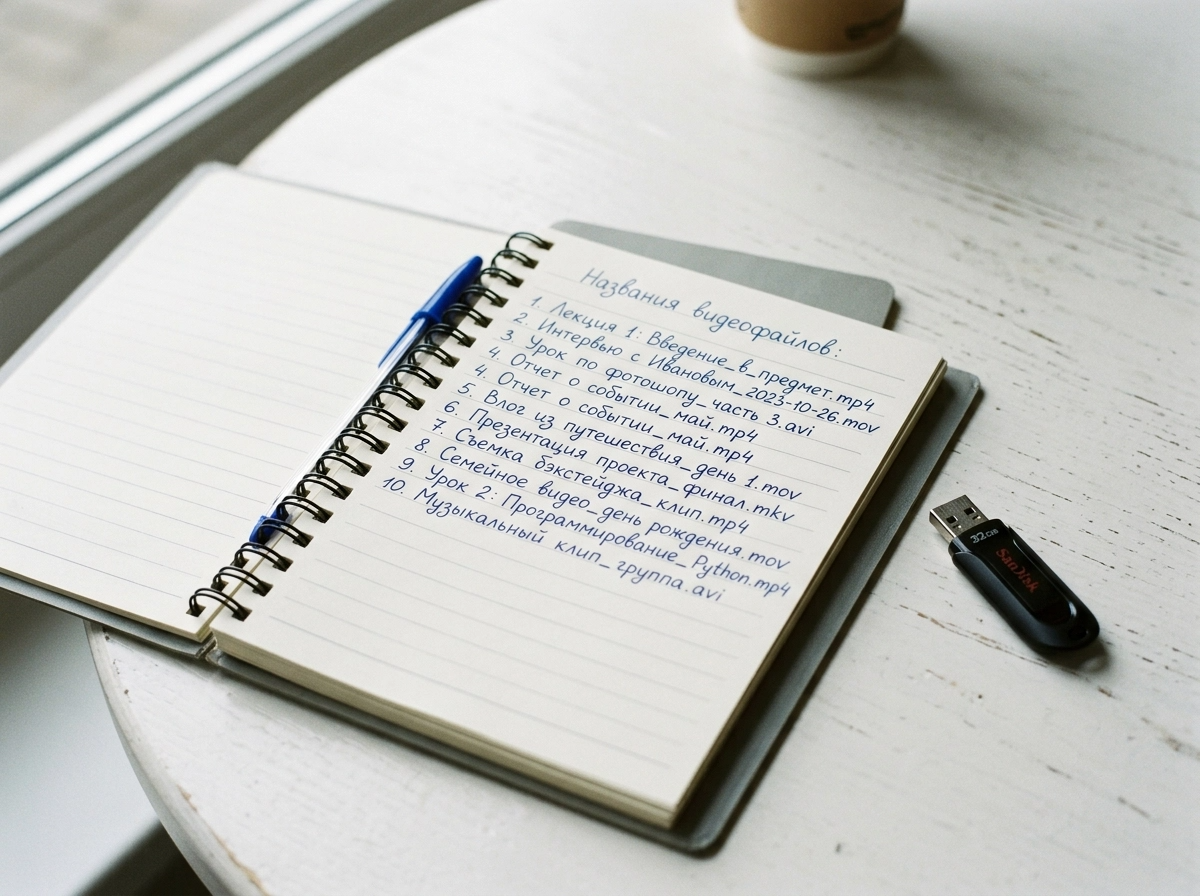 Названия видеофайлов:
1. Лекция 1: Введение_в_предмет.mp4
2. Интервью с Ивановым_2023-10-26.mov
3. Урок по фотошопу_часть 3.avi
4. Отчет о событии_май.mp4
4. Отчет о событии_май.mp4
5. Влог из путешествия_день 1.mov
6. Презентация проекта_финал.mkv
7. Съемка бэкстейджа_клип.mp4
8. Семейное видео_день рождения.mov
9. Урок 2: Программирование_Python.mp4
10. Музыкальный клип_группа.avi
32GB
SanDisk